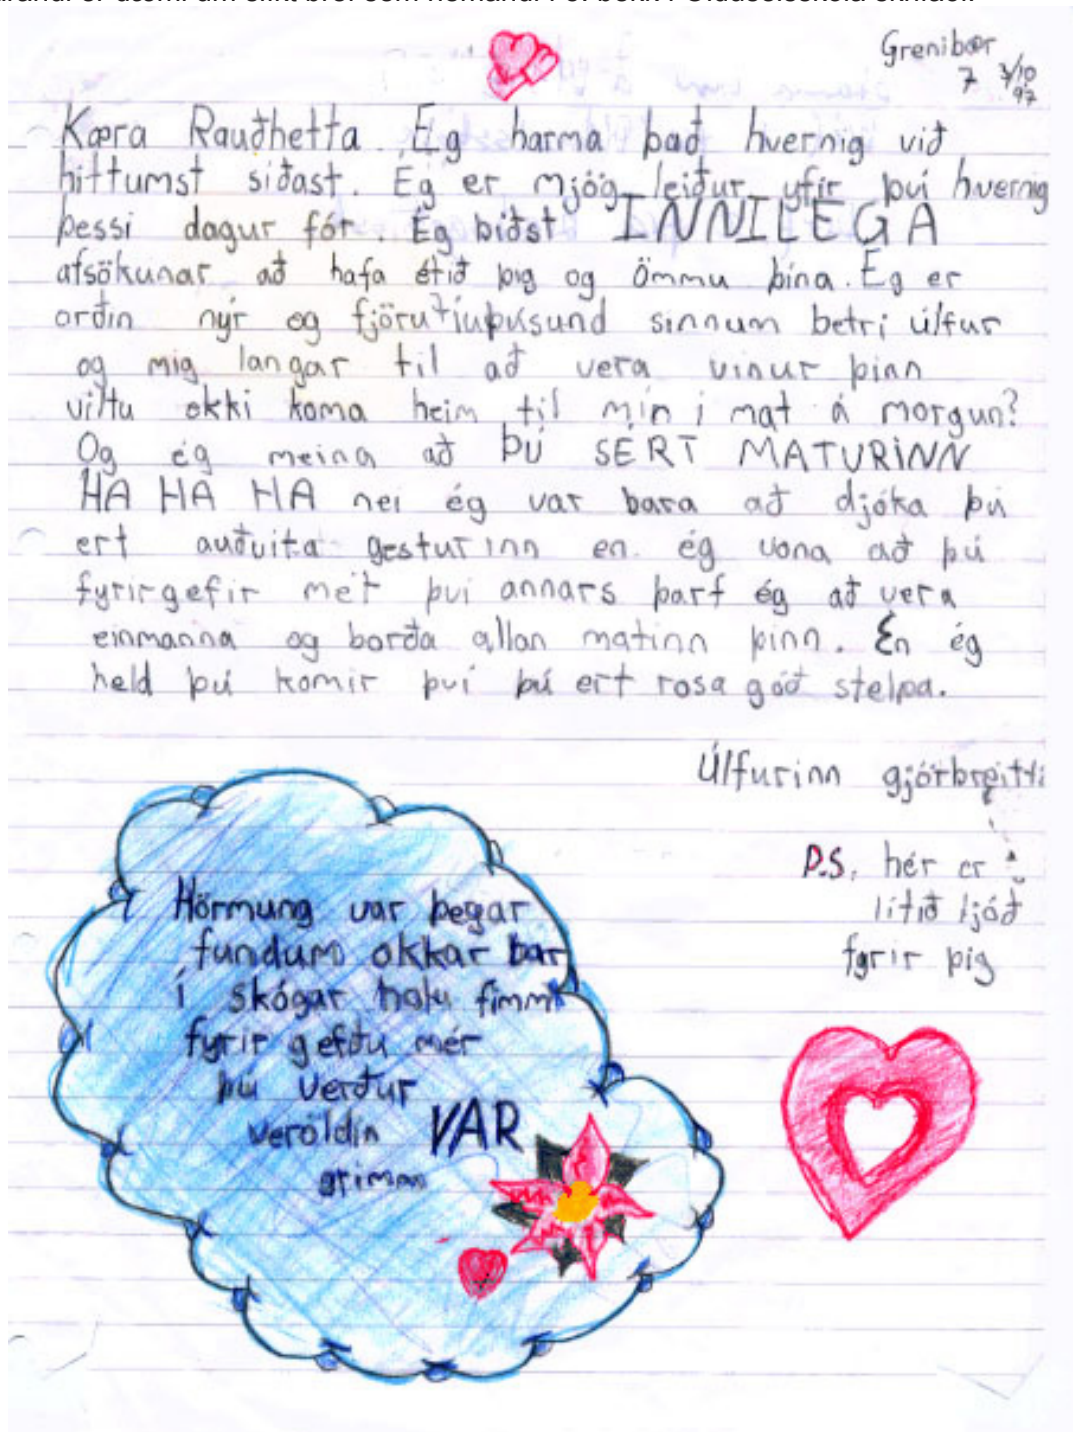 Grenibær
7 3/10
97
Kæra Rauðhetta. Ég harma það hvernig við
hittumst síðast. Ég er mjög leiður yfir því hvernig
þessi dagur fór. Ég biðst INNILEGA
afsökunar að hafa étið þig og Ömmu þína. Ég er
orðin nýr og fjörutíuþúsund sinnum betri úlfur
og mig langar til að vera vinur þinn
viltu okki koma heim til mín í mat á morgun?
Og ég meina að ÞÚ SÉRT MATURINN
HA HA HA nei ég var bara að djóka þú
ert auðvita gesturinn en ég vona að þú
fyrirgefir mét því annars þarf ég að vera
einmanna og borða allan matinn þinn. En ég
held þú komir því þú ert rosa góð stelpa.
Úlfurinn gjörbreitti
P.S. hér er
lítið ljóð
fyrir þig
Hörmung var þegar
fundum okkar bar
í skógar fimm
fyrir gefðu mér
þú verður
veröldin VAR
grimm